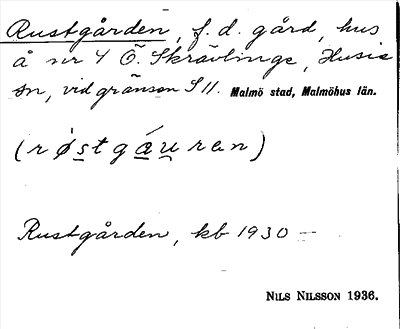 Rustgården, f.d. gård, hus
å nr 4 Ö. Skrävlinge, Husie
sn, vid gränsen S 11. Malmö stad, Malmöhus län.
(røstgáuran)
Rustgården, kb 1930 –
NILS NILSSON 1936.